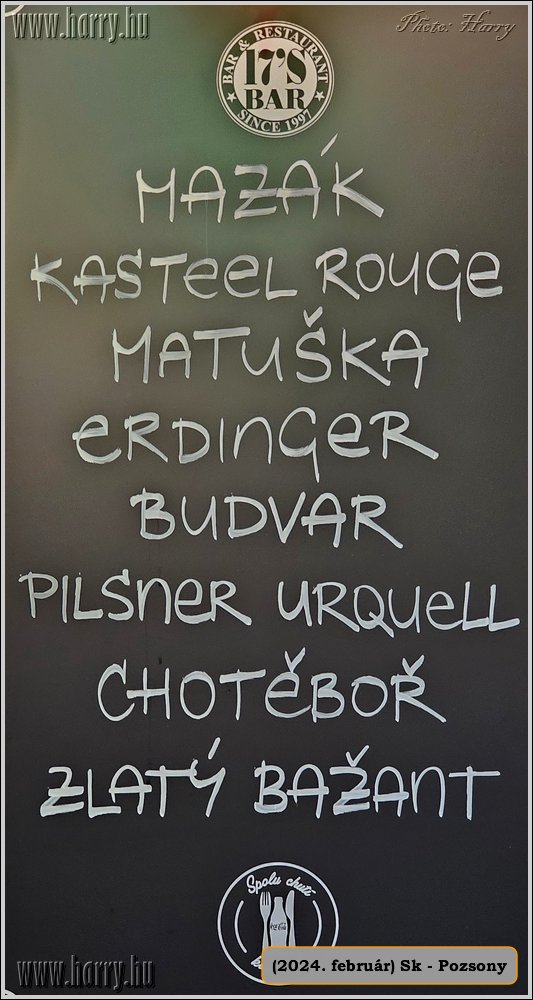 www.harry.hu
Photo: Harry
BAR & RESTAURANT
17'S
BAR
SINCE 1997
MAZÁK
KASTEEL ROUGE
MATUŠKA
ERDINGER
BUDVAR
PILSNER URQUELL
CHOTĚBOŘ
ZLATÝ BAŽANT
Spolu chutí
Coca-Cola
(2024. február) Sk - Pozsony
www.harry.hu